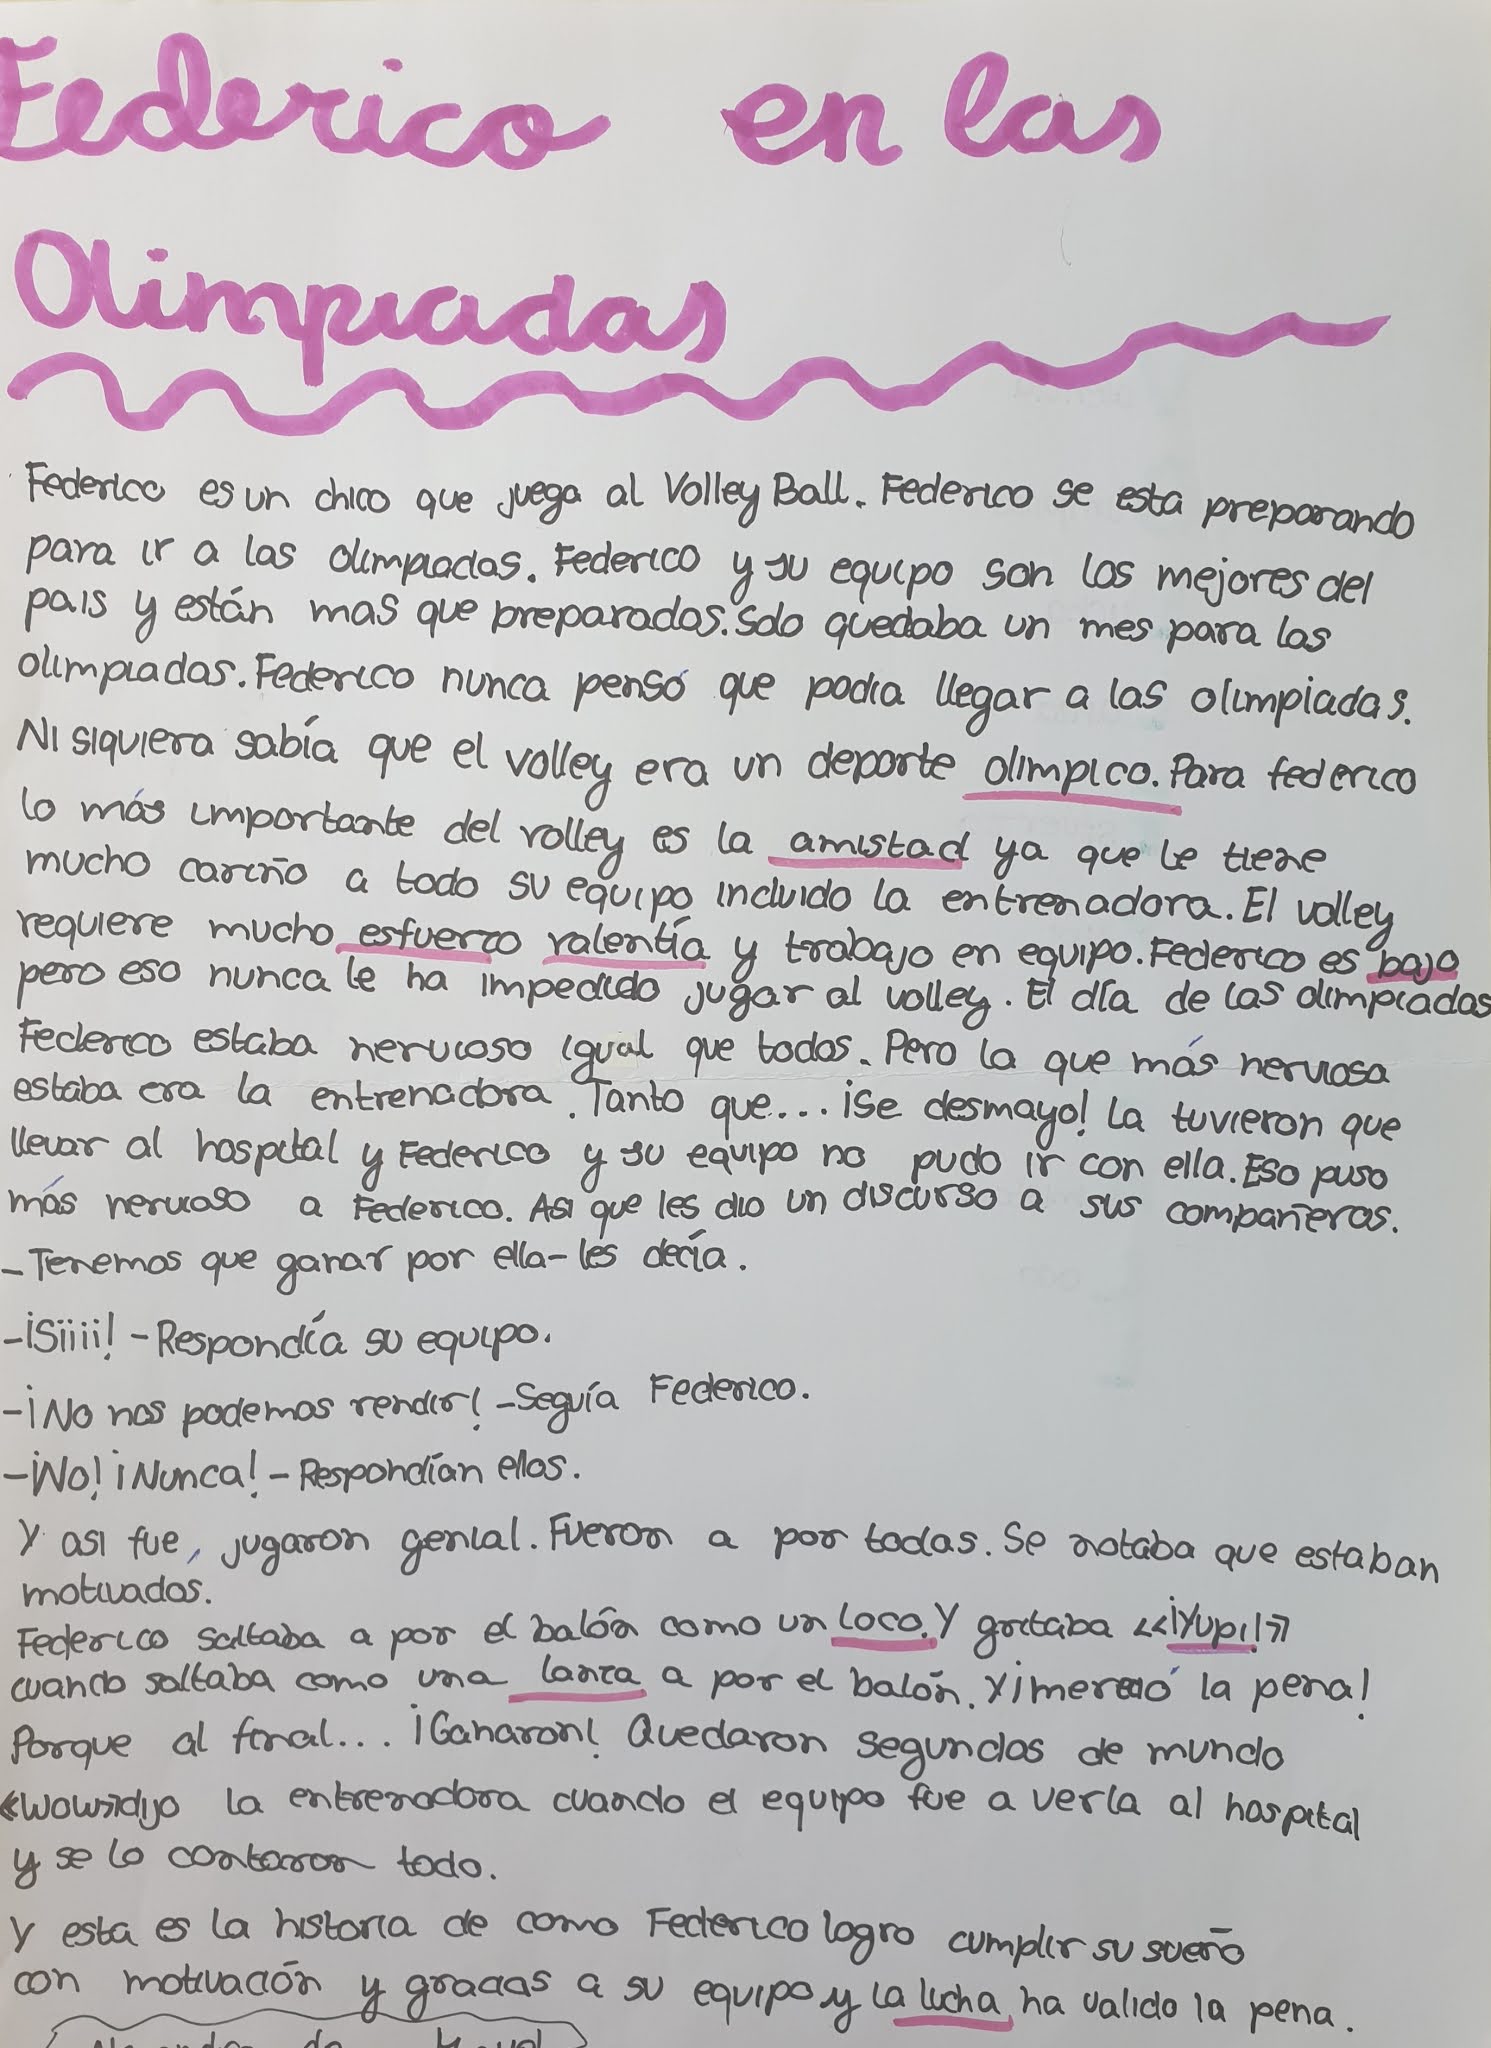 Federico en las
Olimpiadas
Federico es un chico que juega al Volley Ball. Federico se esta preparando
para ir a las olimpiadas. Federico y su equipo son los mejores del
pais y están mas que preparados. Solo quedaba un mes para las
olimpiadas. Federico nunca pensó que podia llegar a las olimpiadas.
Ni siquiera sabía que el volley era un deporte olimpico. Para federico
lo más importante del volley es la amistad ya que le tiene
mucho cariño a todo su equipo incluido la entrenadora. El volley
requiere mucho esfuerzo valentía y trabajo en equipo. Federico es bajo
pero eso nunca le ha impedido jugar al volley. El día de las olimpiadas
Federico estaba nervioso igual que todos. Pero la que más nerviosa
estaba era la entrenadora. Tanto que... ¡Se desmayo! La tuvieron que
llevar al hospital y Federico y su equipo no pudo ir con ella. Eso puso
más nervioso a Federico. Asi que les dio un discurso a sus compañeros.
-Tenemos que ganar por ella- les decía.
-¡Siiii! -Respondía su equipo.
-¡No nos podemos rendir! -Seguía Federico.
-¡No! ¡Nunca! -Respondían ellos.
Y asi fue, jugaron genial. Fueron a por todas. Se notaba que estaban
motivados.
Federico saltaba a por el balón como un loco. Y gritaba «¡Yupi!»
cuando saltaba como una lanza a por el balón. Y ¡mereció la pena!
Porque al final... ¡Ganaron! Quedaron segundos de mundo
«Wow» dijo la entrenadora cuando el equipo fue a verla al hospital
y se lo contaron todo.
Y esta es la historia de como Federico logro cumplir su sueño
con motivación y gracias a su equipo y la lucha ha valido la pena.